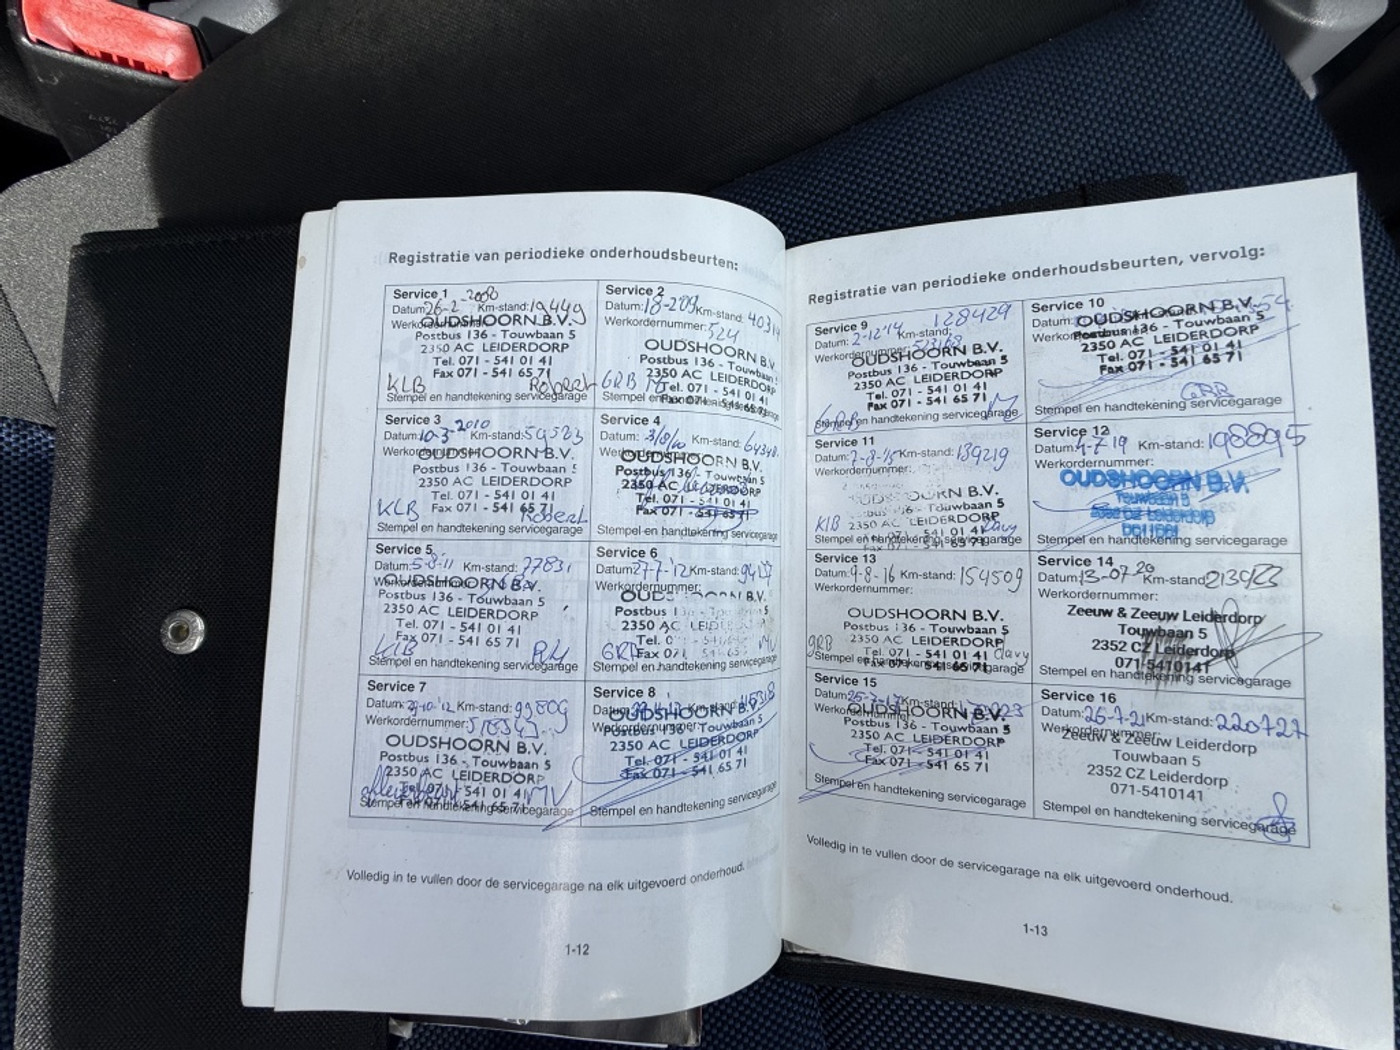 Registratie van periodieke onderhoudsbeurten:
Service 1
Datum: 26-2-2008 Km-stand: 19449
Werkordernummer:
OUDSHOORN B.V.
Postbus 136 - Touwbaan 5
2350 AC LEIDERDORP
Tel. 071 - 541 01 41
Fax 071 - 541 65 71
KLB Robert
Stempel en handtekening servicegarage
Service 2
Datum: Km-stand:
Werkordernummer: 524
OUDSHOORN B.V.
Postbus 136 - Touwbaan
2350 AC LEIDERDORP
Tel. 071 - 541 01 41
Fax 071 - 541 65 71
GRB
Service 3
Datum: 10-3-2010 Km-stand: 59523
OUDSHOORN B.V.
Postbus 136 - Touwbaan 5
2350 AC LEIDERDORP
Tel. 071 - 541 01 41
Fax 071 - 541 65 71
KLB Robert
Stempel en handtekening servicegarage
Service 4
Datum: 3/8/10 Km-stand: 64348
OUDSHOORN B.V.
Postbus 136 - Touwbaan 5
2350 AC
Tel. 071 - 541 01 41
Fax 071 - 541 65 71
Stempel en handtekening servicegarage
Service 5
Datum: 5-8-11 Km-stand: 77831
Werkordernummer:
OUDSHOORN B.V.
Postbus 136 - Touwbaan 5
2350 AC LEIDERDORP
Tel. 071 - 541 01 41
Fax 071 - 541 65 71
KLB
Stempel en handtekening servicegarage
Service 6
Datum: 27-7-'12 Km-stand:
Werkordernummer:
OUDSHOORN B.V.
Postbus
2350 AC
Tel.
Fax 071
Stempel en handtekening servicegarage
Service 7
Datum: Km-stand: 99809
Werkordernummer:
OUDSHOORN B.V.
Postbus 136 - Touwbaan 5
2350 AC LEIDERDORP
Tel. 071 - 541 01 41
Fax 071 - 541 65 71
Stempel en handtekening servicegarage
Service 8
Datum: Km-stand:
Werkordernummer:
OUDSHOORN B.V.
Postbus 136 - Touwbaan 5
2350 AC LEIDERDORP
Tel. 071 - 541 01 41
Fax 071 - 541 65 71
Stempel en handtekening servicegarage
Volledig in te vullen door de servicegarage na elk uitgevoerd onderhoud.
1-12
Registratie van periodieke onderhoudsbeurten, vervolg:
Service 9
128429
Datum: 2-12'14 Km-stand:
Werkordernummer:
OUDSHOORN B.V.
Postbus 136 - Touwbaan 5
2350 AC LEIDERDORP
Tel. 071 - 541 01 41
Fax 071 - 541 65 71
Stempel en handtekening servicegarage
Service 10
Datum:
OUDSHOORN B.V.
Postbus 136 - Touwbaan 5
2350 AC LEIDERDORP
Tel. 071 - 541 01 41
Fax 071 - 541 65 71
Stempel en handtekening servicegarage
Service 11
Datum: Km-stand: 139219
Werkordernummer:
OUDSHOORN B.V.
Touwbaan 5
2350 AC LEIDERDORP
071 - 541 01 41
Davy
Stempel en handtekening servicegarage
Service 12
Datum: 4-7-19 Km-stand: 198895
Werkordernummer:
OUDSHOORN B.V.
Touwbaan 5
2352 CZ Leiderdorp
Stempel en handtekening servicegarage
Service 13
Datum: 9-8-16 Km-stand: 154509
Werkordernummer:
OUDSHOORN B.V.
Postbus 136 - Touwbaan 5
2350 AC LEIDERDORP
Tel. 071 - 541 01 41
Fax 071 - 541 65 71
GRB Davy
Stempel en handtekening servicegarage
Service 14
Datum: 13-07-20 Km-stand
Werkordernummer:
Zeeuw & Zeeuw Leiderdorp
Touwbaan 5
2352 CZ Leiderdorp
071-5410141
Stempel en handtekening servicegarage
Service 15
Datum: 25-7-17 Km-stand:
OUDSHOORN B.V.
Postbus 136 - Touwbaan 5
2350 AC LEIDERDORP
Tel. 071 - 541 01 41
Fax 071 - 541 65 71
Stempel en handtekening servicegarage
Service 16
Datum: 26-7-21 Km-stand: 220727
Werkordernummer:
Zeeuw & Zeeuw Leiderdorp
Touwbaan 5
2352 CZ Leiderdorp
071-5410141
Stempel en handtekening servicegarage
Volledig in te vullen door de servicegarage na elk uitgevoerd onderhoud.
1-13